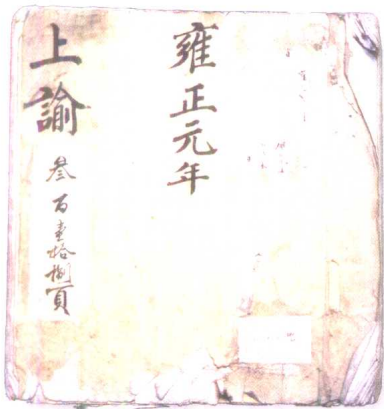 雍正元年
上諭
叁百壹拾捌頁